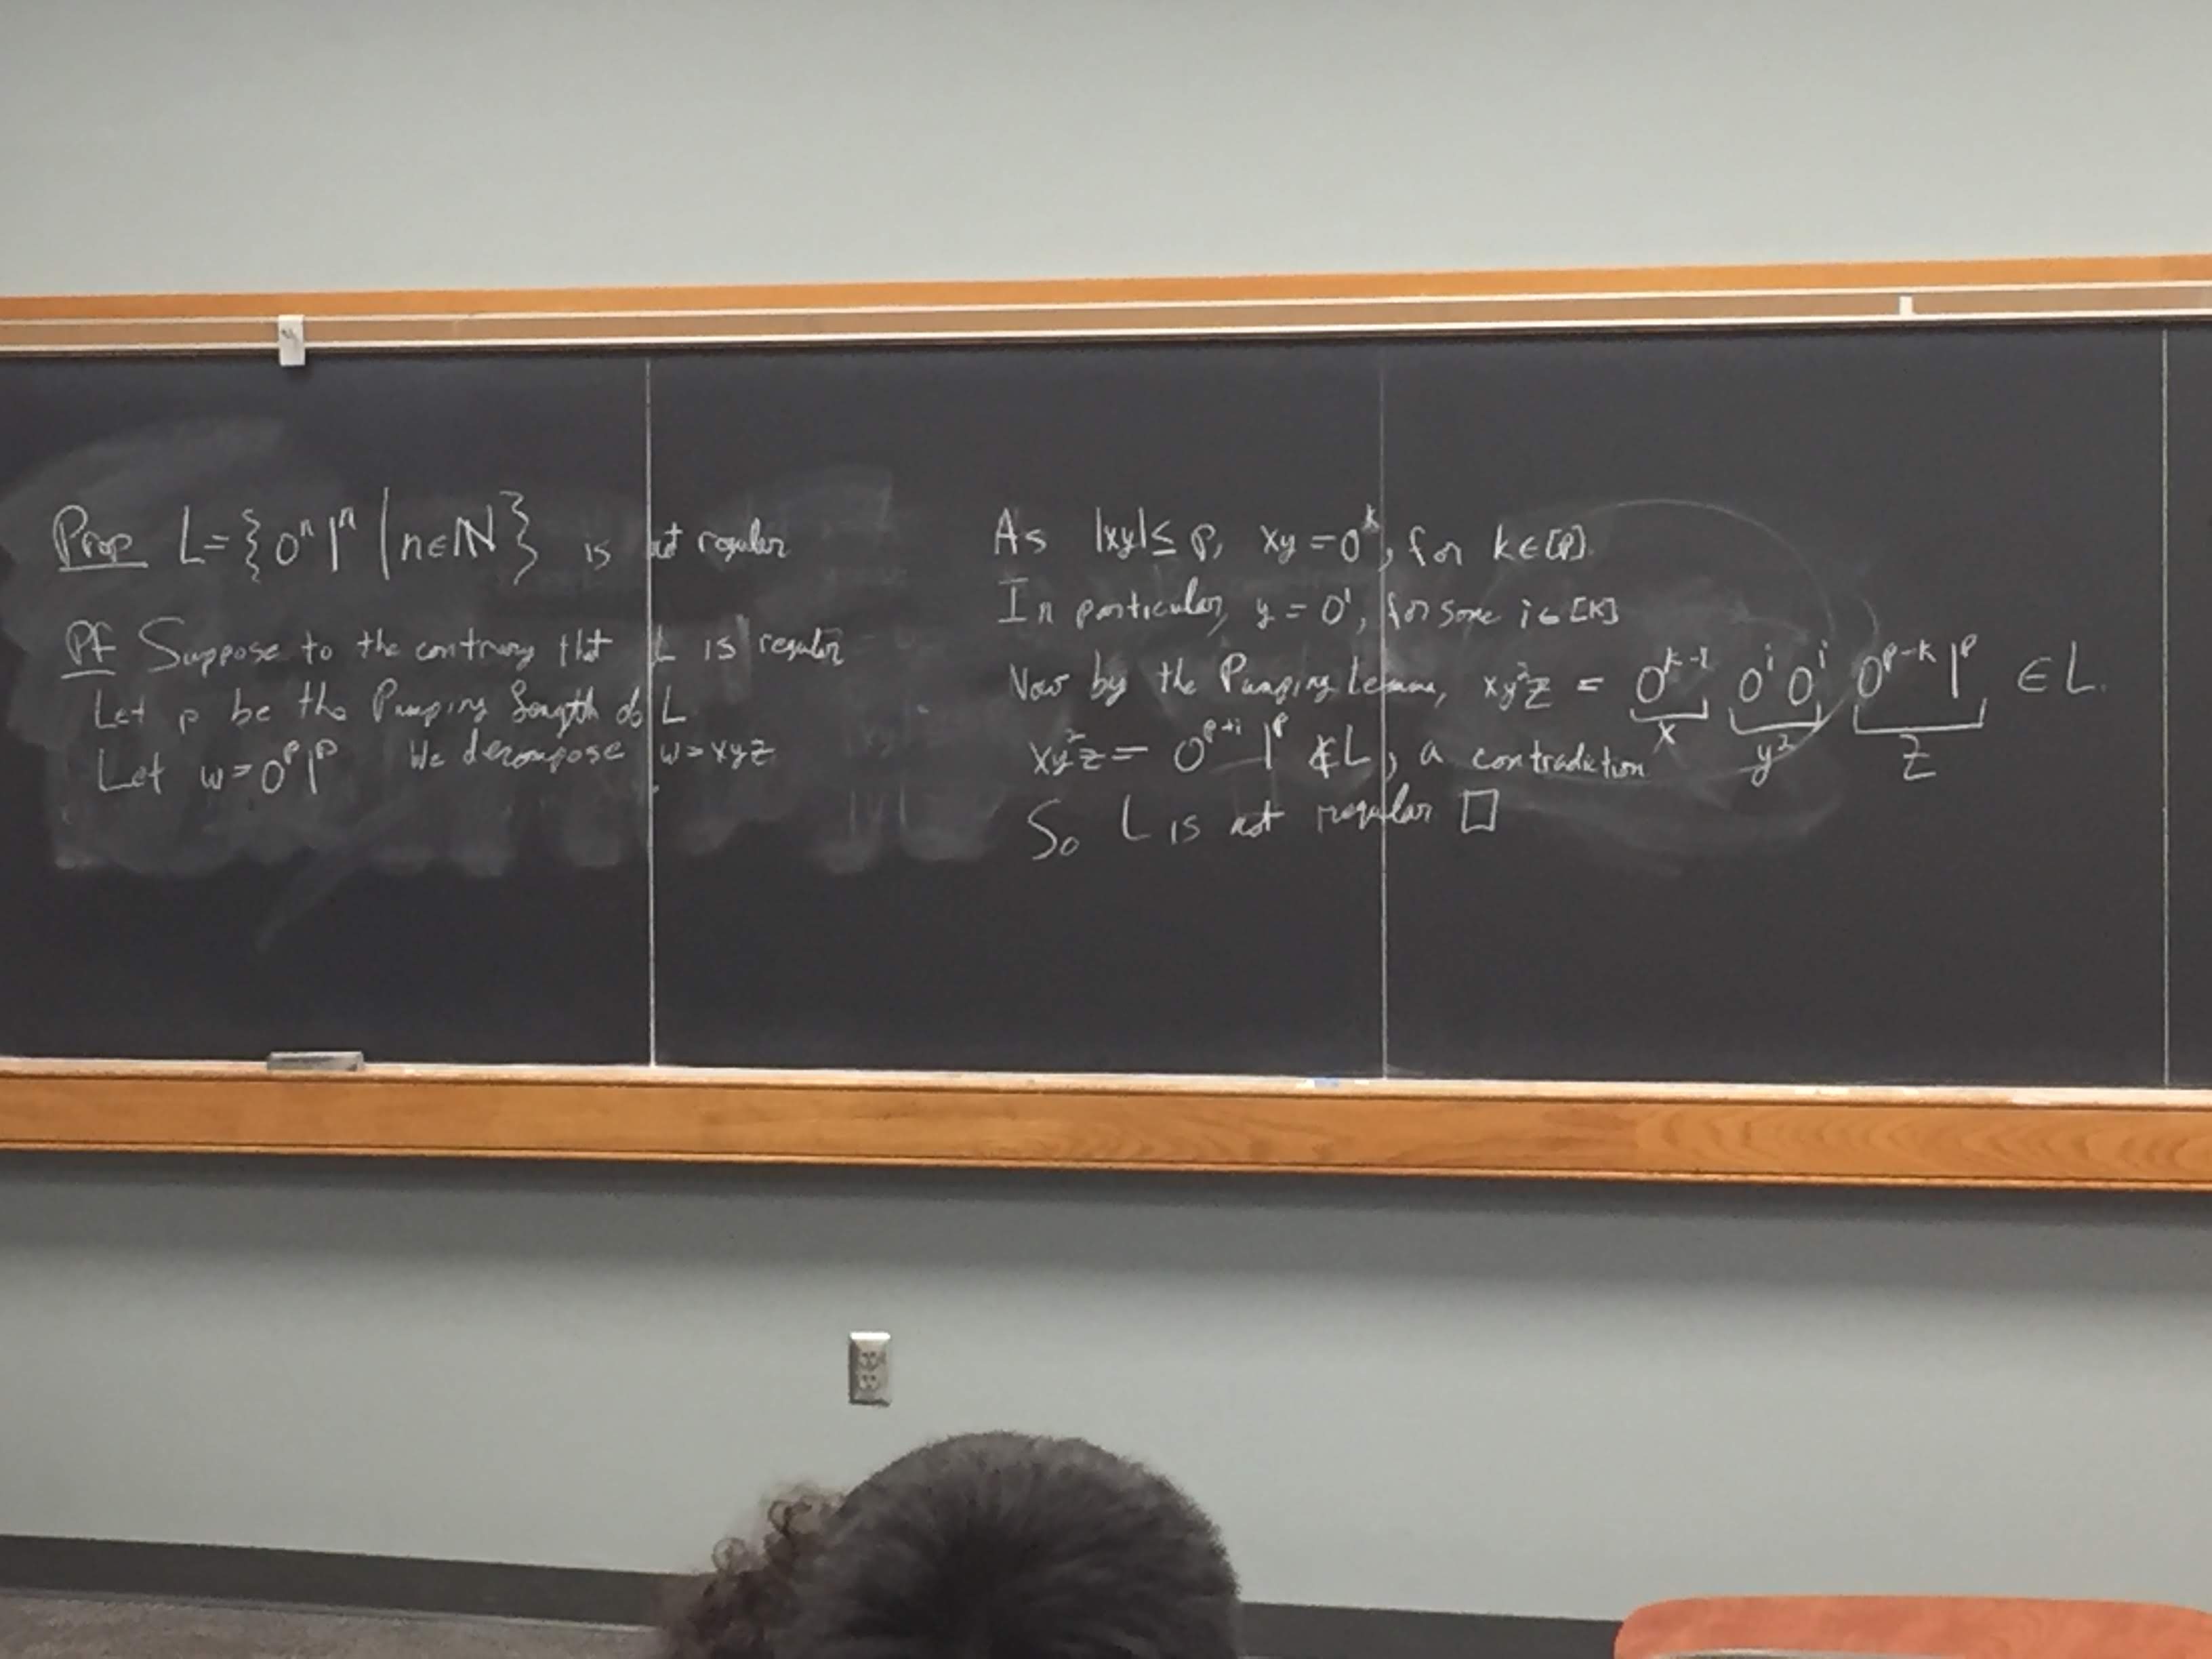 Prop L = {0ⁿ1ⁿ | n∈ℕ} is not regular
Pf Suppose to the contrary that L is regular
Let p be the Pumping length of L
Let w = 0ᵖ1ᵖ We decompose w = xyz
As |xy| ≤ p, xy = 0ᵏ, for k∈[p].
In particular, y = 0ⁱ, for some i∈[k]
Now by the Pumping Lemma, xy²z = 0ᵏ⁻ⁱ 0ⁱ0ⁱ 0ᵖ⁻ᵏ1ᵖ ∈ L.
x y² z
xy²z = 0ᵖ⁺ⁱ 1ᵖ ∉ L, a contradiction
So L is not regular □